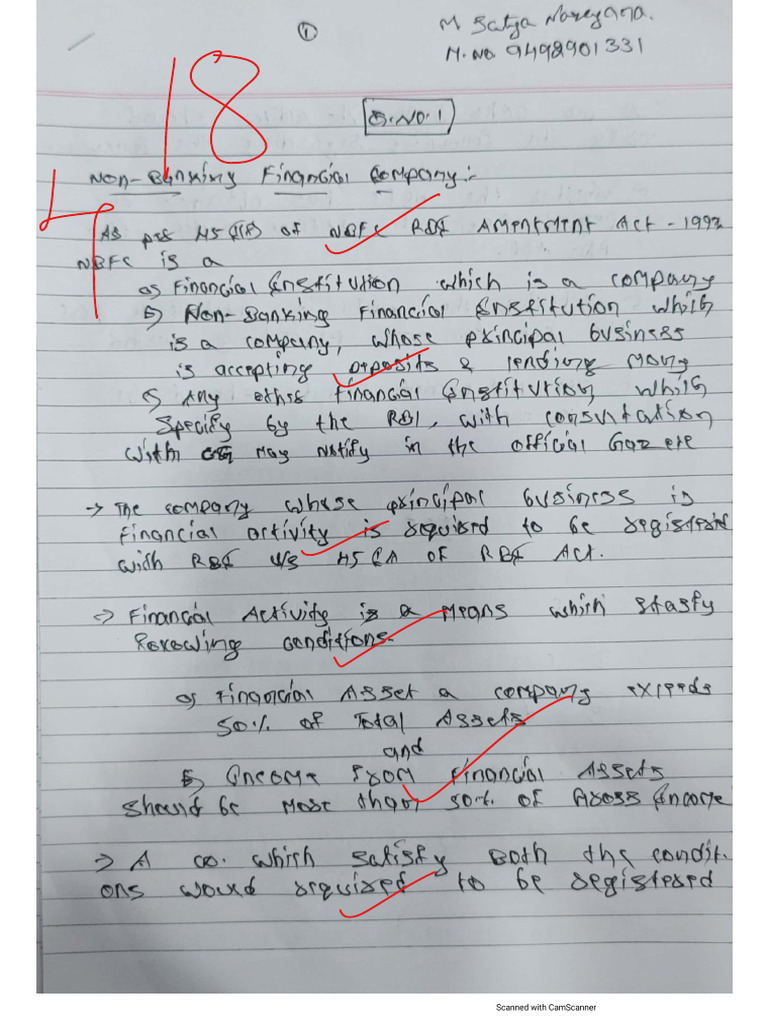 ①
M Satya Narayana.
M. No. 9492901331
18
Q.No.1
Non-Banking Financial Company:-
4
As per 45(I) of NBFC RBI Amentment Act - 1997
NBFC is a
a) Financial Institution which is a company
b) Non-Banking Financial Institution which
is a company, whose principal business
is accepting deposits & lending mony
c) Any other financial Institution which
Specify by the RBI, with consultation
with CG may notify in the official Gazete
→ The company whose principal business is
financial activity is required to be registered
with RBI u/s 45 IA of RBI Act.
→ Financial Activity is a means which stasfy
conditions.
a) Financial Asset a company exceeds
50% of Total Assets
and
b) Income from financial Assets
should be more than 50% of Gross Income
→ A co. which satisfy both the condit.
ons would required to be registered
Scanned with CamScanner